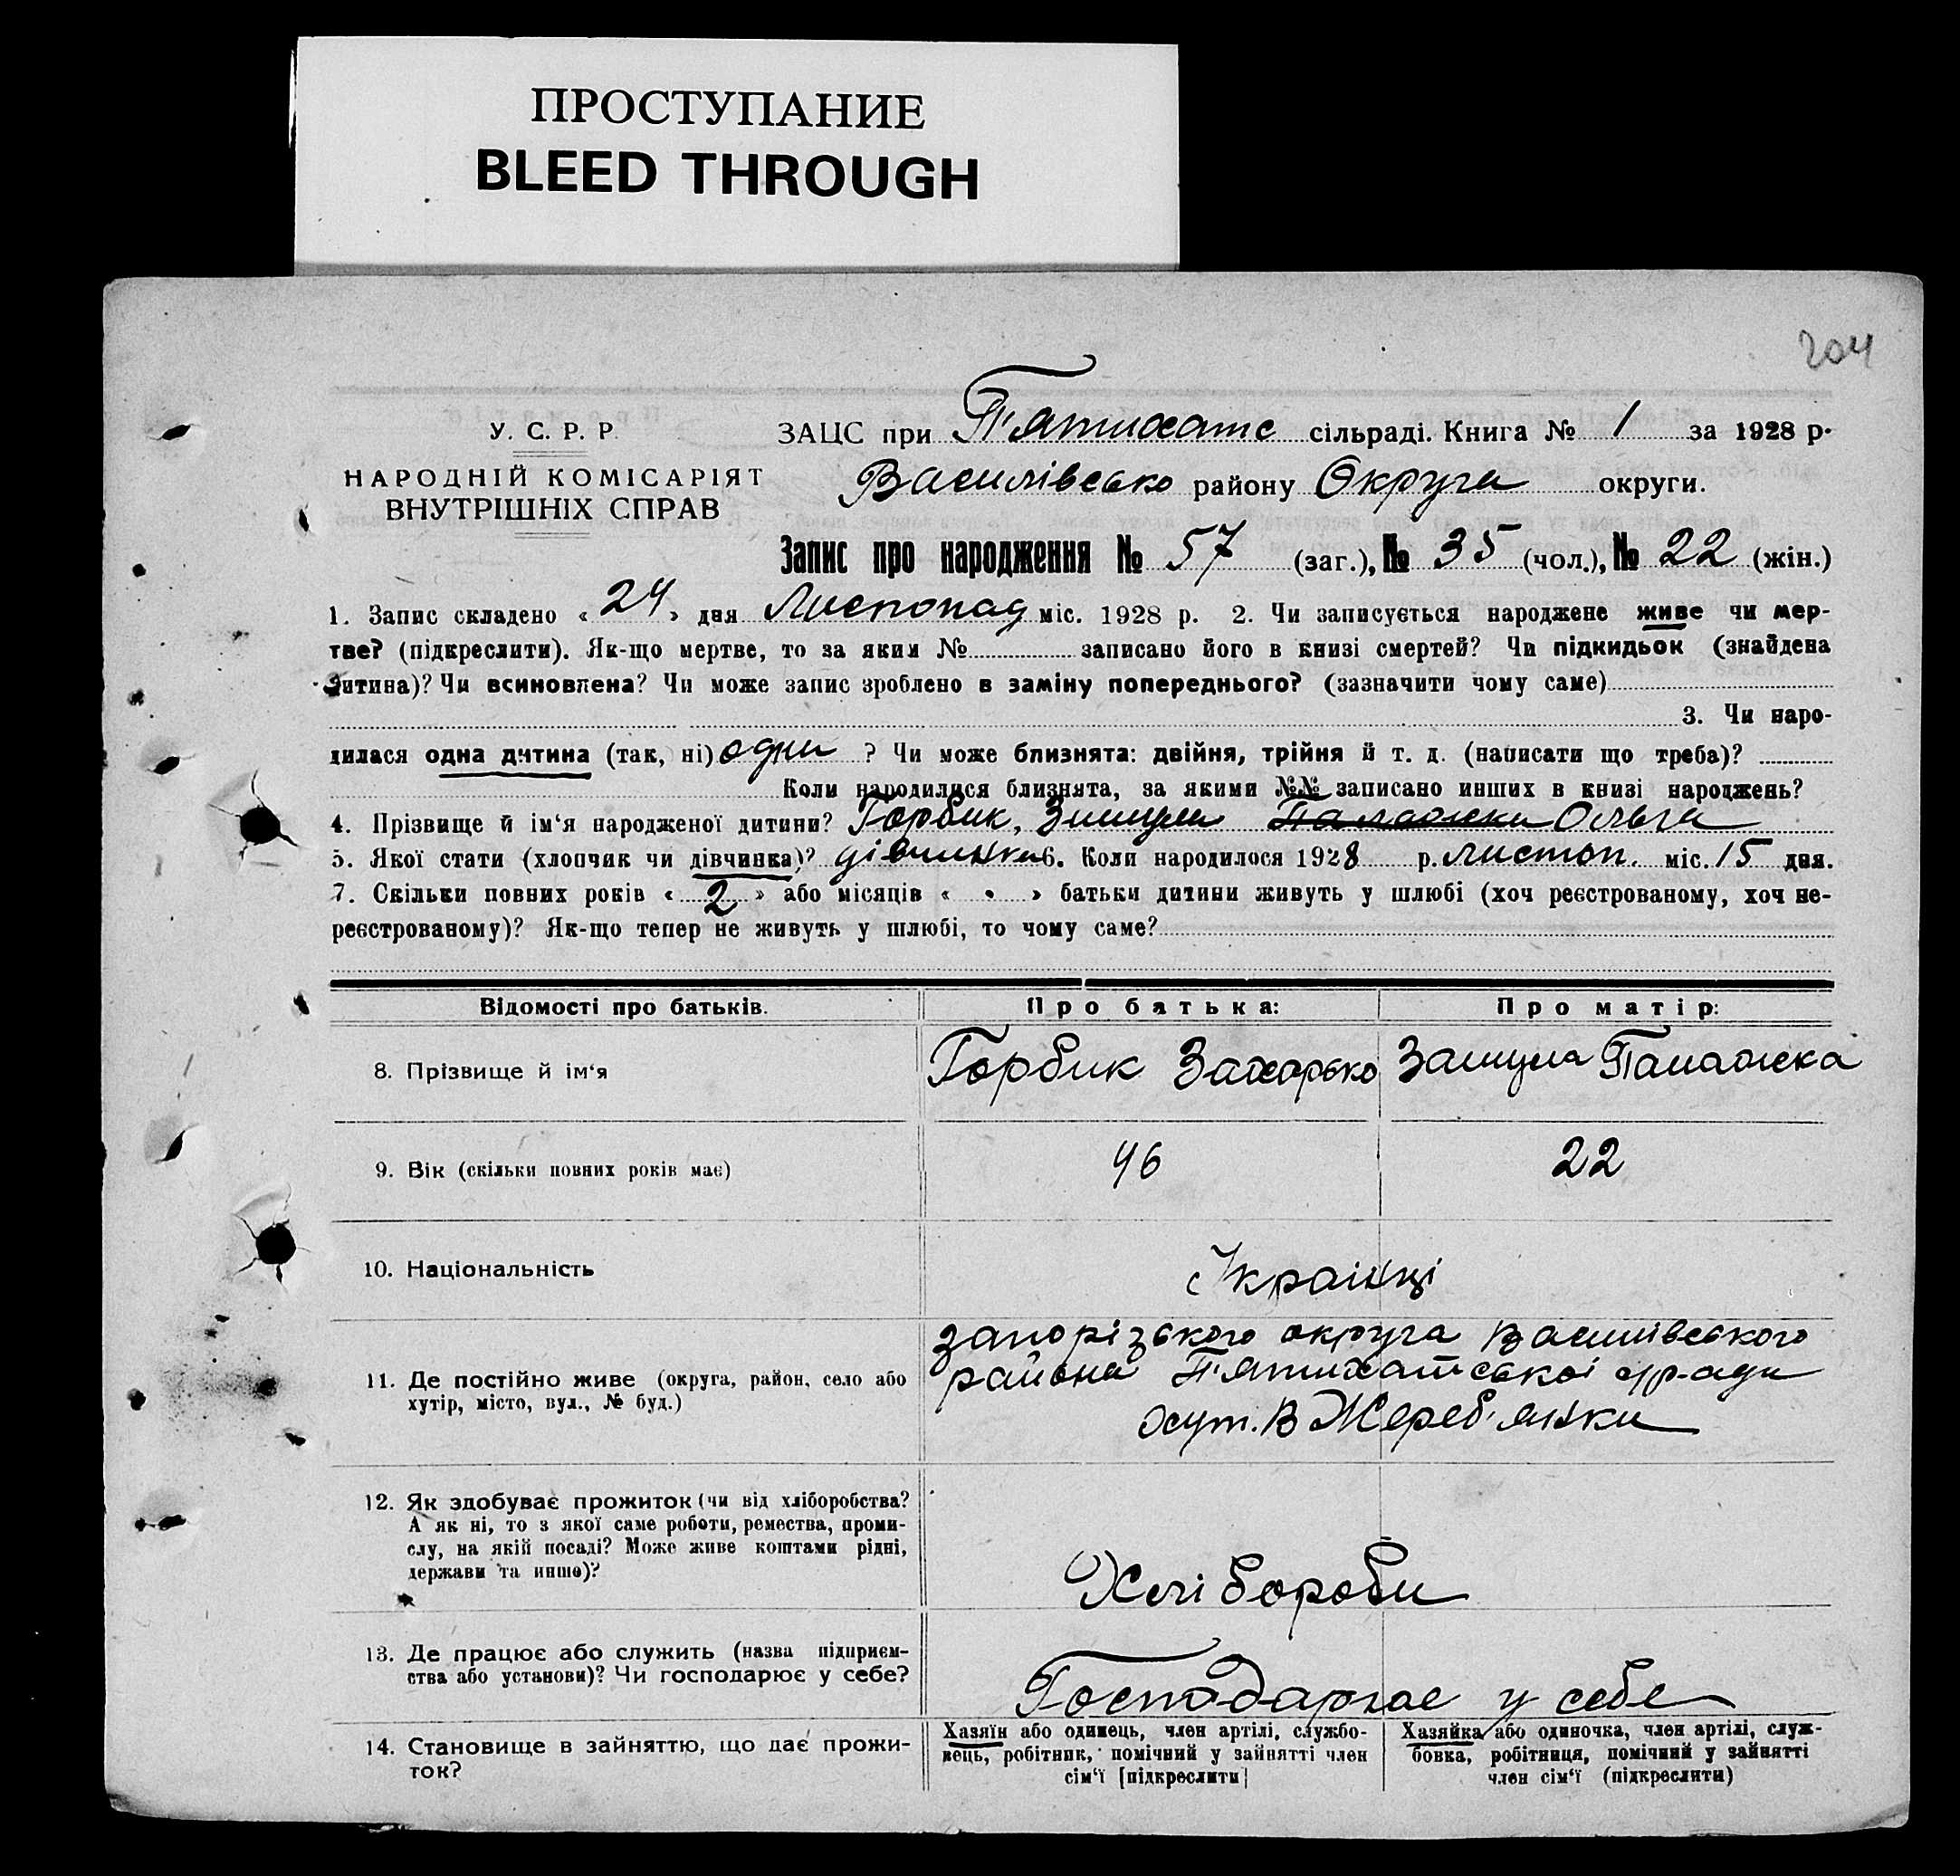 ПРОСТУПАНИЕ
BLEED THROUGH
204
У. С. Р. Р.
НАРОДНІЙ КОМІСАРІЯТ
ВНУТРІШНІХ СПРАВ
ЗАЦС при П'ятихатс сільраді. Книга № 1 за 1928 р.
Василівсько району Округа округи.
Запис про народження № 57 (заг.), № 35 (чол.), № 22 (жін.)
1. Запис складено « 24 » дня Листопад міс. 1928 р. 2. Чи записується народжене живе чи мер-
тве? (підкреслити). Як-що мертве, то за яким № записано його в книзі смертей? Чи підкидьок (знайдена
дитина)? Чи всиновлена? Чи може запис зроблено в заміну попереднього? (зазначити чому саме)
3. Чи наро-
дилася одна дитина (так, ні) одна ? Чи може близнята: двійня, трійня й т. д. (написати що треба)?
Коли народилися близнята, за якими №№ записано инших в книзі народжень?
4. Прізвище й ім'я народженої дитини? Горбик, Ольга
5. Якої стати (хлопчик чи дівчинка)? дівчинка 6. Коли народилося 1928 р. листоп. міс. 15 дня.
7. Скільки повних років « 2 » або місяців « • » батьки дитини живуть у шлюбі (хоч реєстрованому, хоч не-
реєстрованому)? Як-що тепер не живуть у шлюбі, то чому саме?
Відомості про батьків. Про батька: Про матір:
8. Прізвище й ім'я Горбик Захарько
9. Вік (скільки повних років має) 46 22
10. Національність Українці
11. Де постійно живе (округа, район, село або
хутір, місто, вул., № буд.)
Запорізького округа Василівського
района П'ятихатської с/р-ади
хут. В Жереб'янки
12. Як здобуває прожиток (чи від хліборобства?
А як ні, то з якої саме роботи, ремества, проми-
слу, на якій посаді? Може живе коштами рідні,
держави та инше)?
Хлібороби
13. Де працює або служить (назва підприєм-
ства або установи)? Чи господарює у себе?
Господарює у себе
14. Становище в зайняттю, що дає прожи-
ток?
Хазяїн або одинець, член артілі, службо-
вець, робітник, помічний у зайнятті член
сім'ї [підкреслити]
Хазяйка або одиночка, член артілі, служ-
бовка, робітниця, помічний у зайнятті
член сім'ї (підкреслити)